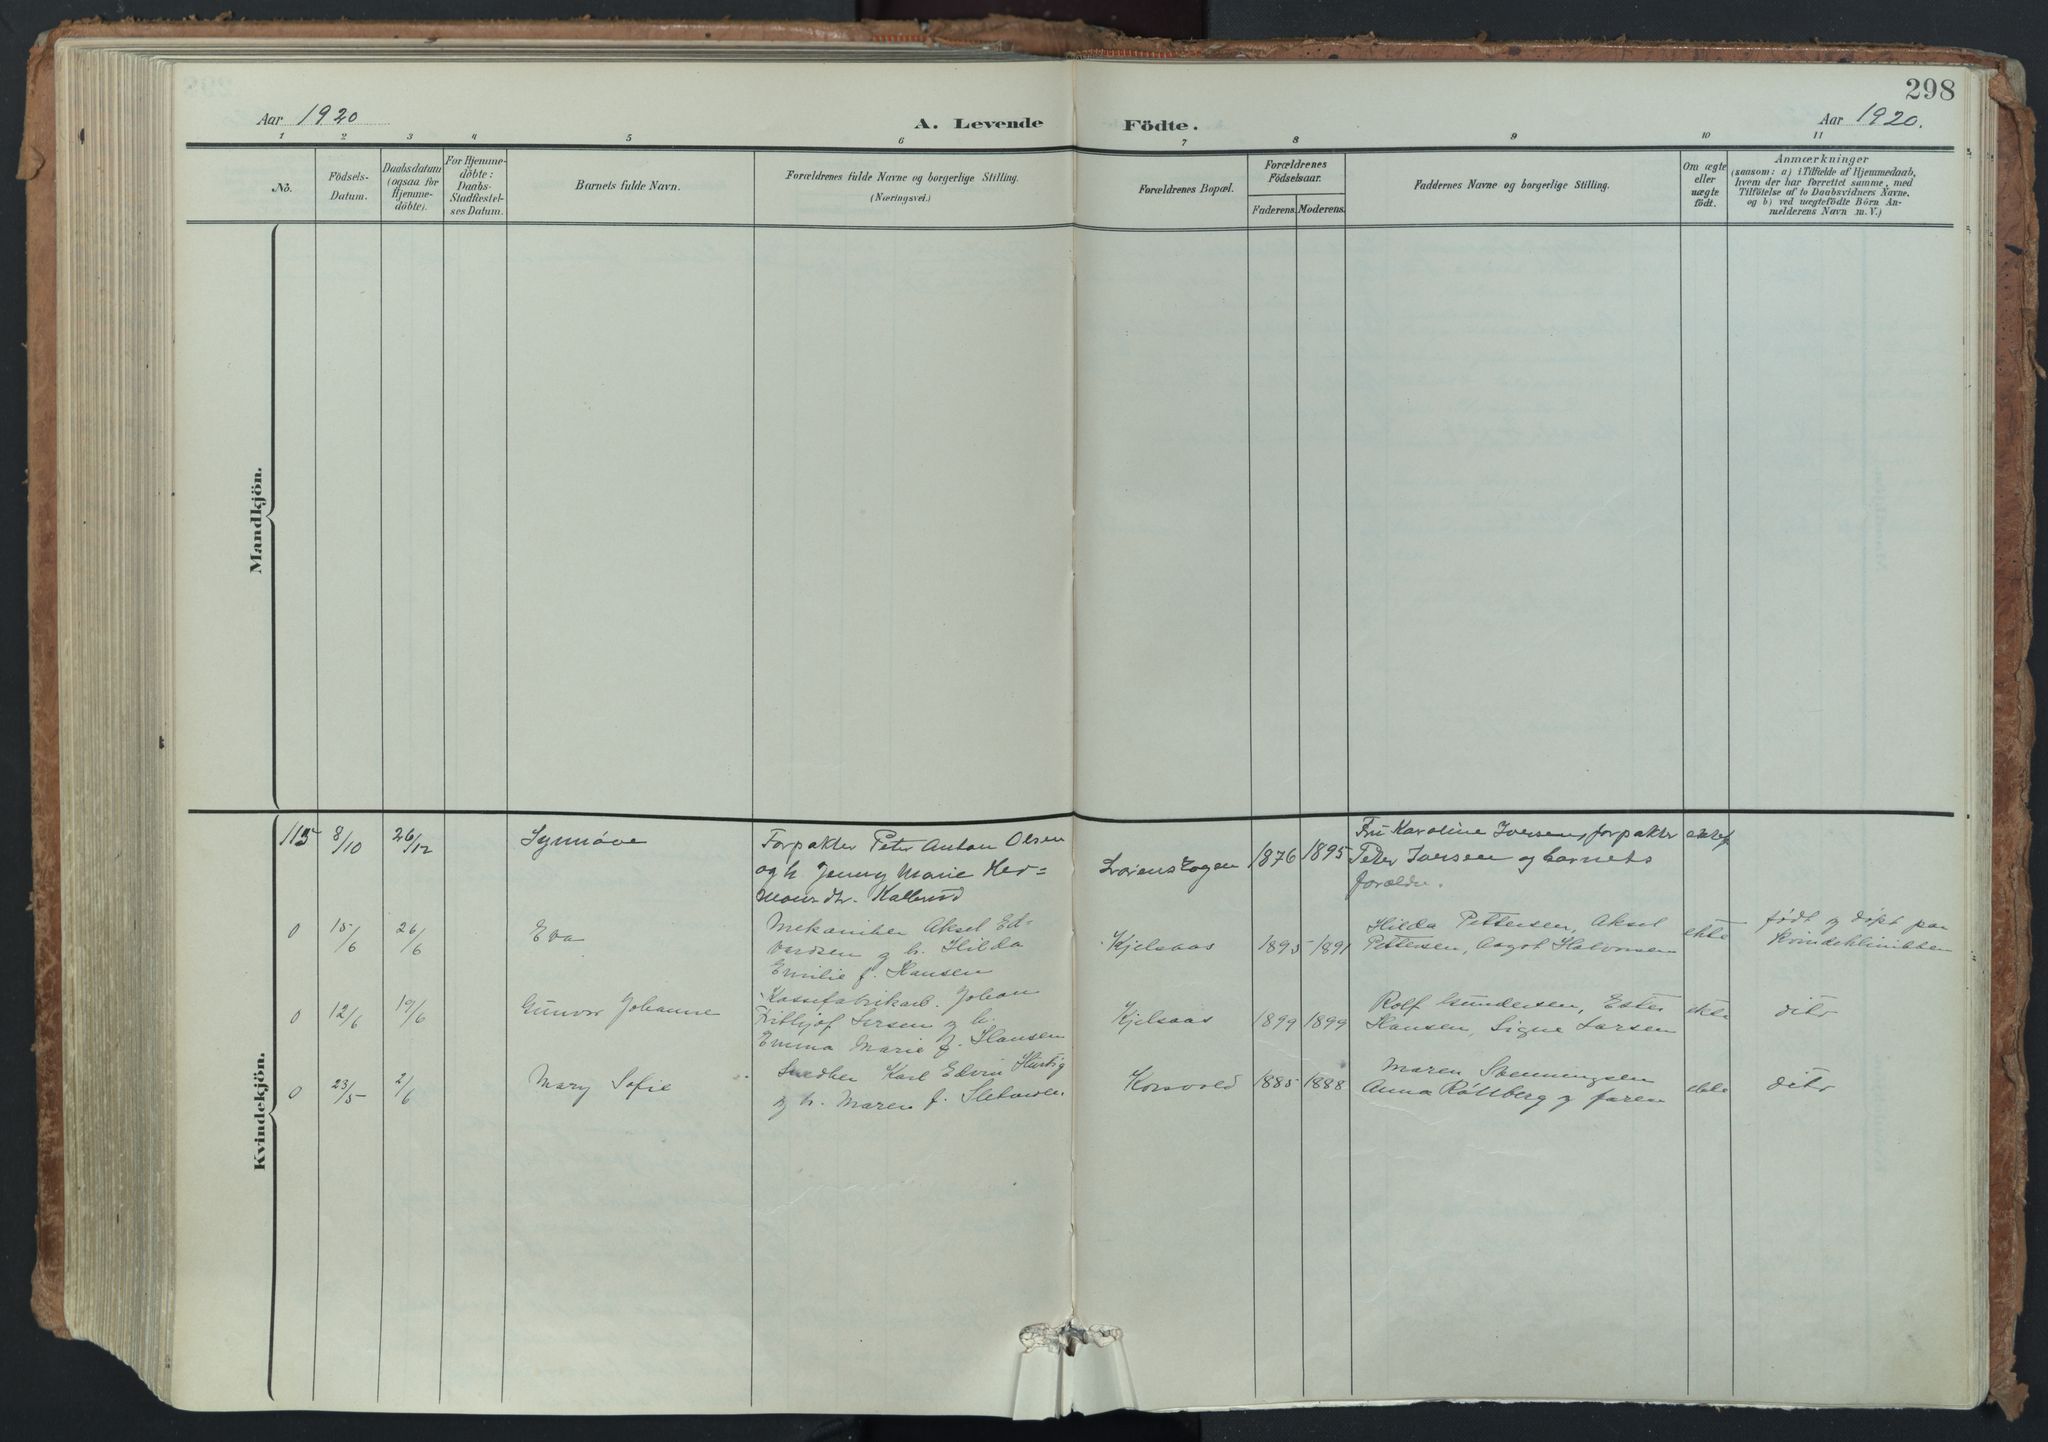 298
Aar 1920
A. Levende Födte.
Aar 1920.
1 2 3 4 5 6 7 8 9 10 11
No.
Födsels-
Datum.
Daabsdatum
(ogsaa for
Hjemme-
döbte).
For Hjemme-
döbte:
Daabs-
Stadfæstel-
ses Datum.
Barnets fulde Navn.
Forældrenes fulde Navne og borgerlige Stilling.
(Næringsvei.)
Forældrenes Bopæl.
Forældrenes
Födselsaar.
Faderens. Moderens.
Faddernes Navne og borgerlige Stilling.
Om ægte
eller
uægte
födt.
Anmærkninger
(saasom: a) i Tilfælde af Hjemmedaab,
hvem der har forrettet samme, med
Tilföielse af to Daabsvidners Navne,
og b) ved uægtefödte Börn An-
melderens Navn m. V.)
Mandkjön.
Kvindekjön.
115 8/10 26/12 Synnøve
Forpakter Peter Anton Olsen
og h. Jenny Marie Her=
mansdtr. Kallerud
1876 1895
Fru Karoline Iversen, forpakter
Peter Iversen og barnets
forældre.
0 15/6 26/6 Eva
Mekaniker Aksel Ed-
vardsen og h. Hilda
Emilie f. Hansen
Kjelsaas 1895 1891
Hilda Pettersen, Aksel
Pettersen, Aagot Halvorsen
ekte
født og døpt paa
Kvindeklinikken
0 12/6 19/6 Gunvor Johanne
Kassefabrikarb. Johan
Frithjof Larsen og h.
Emma Marie f. Hansen
Kjelsaas 1899 1899
Rolf Gundersen, Ester
Hansen, Signe Larsen
ekte
dito
0 23/5 2/6 Mary Sofie
Snedker Karl Edvin
og h. Maren f.
Korsvold 1885 1888
Maren
Anna og faren
ekte
dito